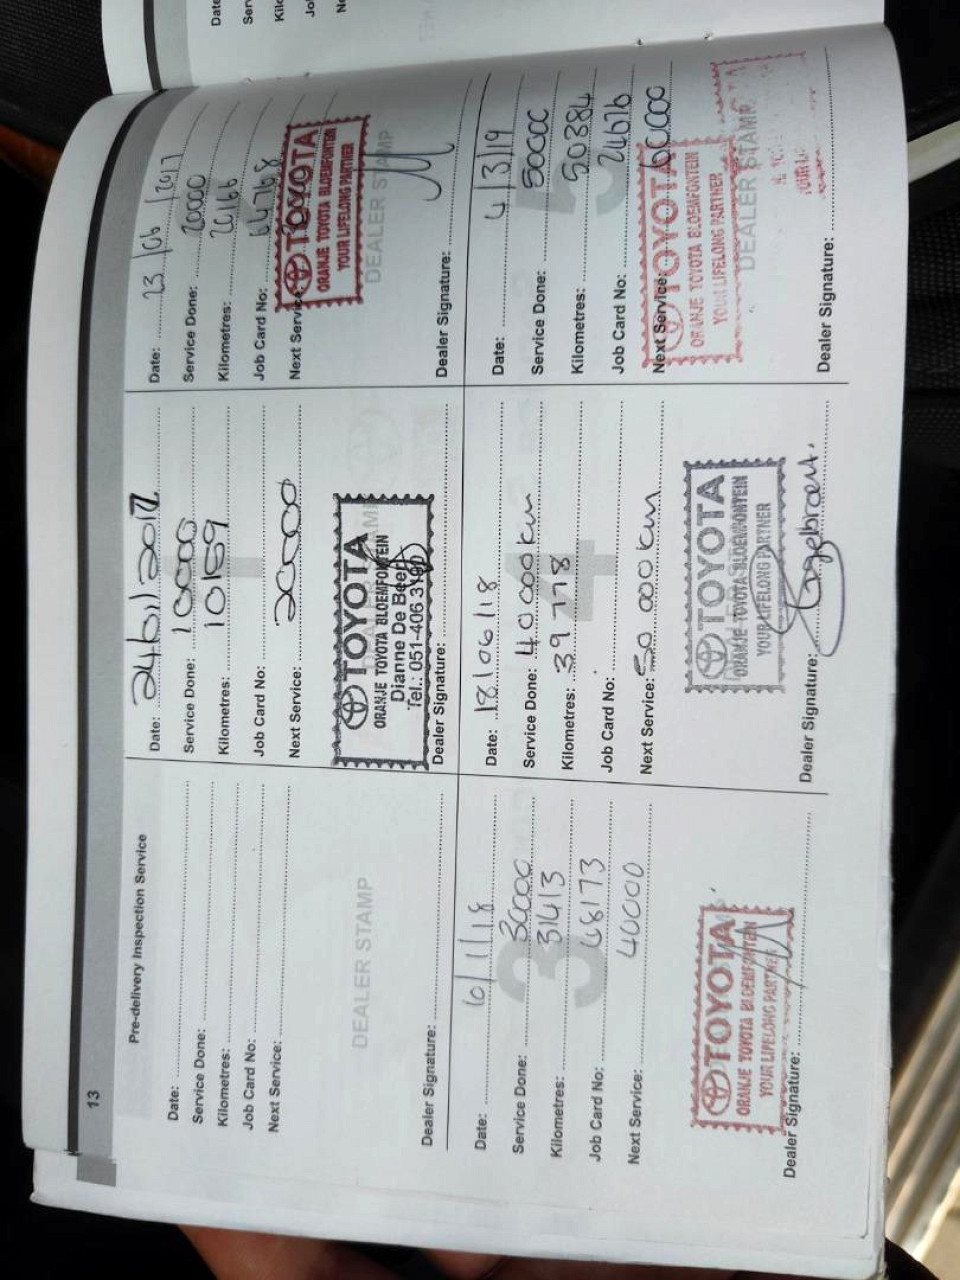 13
Pre-delivery Inspection Service
Date:
Service Done:
Kilometres:
Job Card No:
Next Service:
DEALER STAMP
Dealer Signature:
Date: 24/01/2017
Service Done: 10000
Kilometres: 10159
Job Card No:
Next Service: 20000
TOYOTA
ORANJE TOYOTA BLOEMFONTEIN
Dianne De Beer
Tel.: 051-406 3100
Dealer Signature:
Date: 23/06/2017
Service Done: 20000
Kilometres: 20166
Job Card No: 64768
Next Service:
TOYOTA
ORANJE TOYOTA BLOEMFONTEIN
YOUR LIFELONG PARTNER
DEALER STAMP
Dealer Signature:
Date: 10/1/18
Service Done: 30000
Kilometres: 31413
Job Card No: 48173
Next Service: 40000
3
TOYOTA
ORANJE TOYOTA BLOEMFONTEIN
YOUR LIFELONG PARTNER
Dealer Signature:
Date: 18/06/18
Service Done: 40 000 km
Kilometres: 39 778
Job Card No:
Next Service: 50 000 km
4
TOYOTA
ORANJE TOYOTA BLOEMFONTEIN
YOUR LIFELONG PARTNER
Dealer Signature:
Date: 4/3/19
Service Done: 50000
Kilometres: 50384
Job Card No: 24676
Next Service:
5
TOYOTA
ORANJE TOYOTA BLOEMFONTEIN
YOUR LIFELONG PARTNER
DEALER STAMP
Dealer Signature: